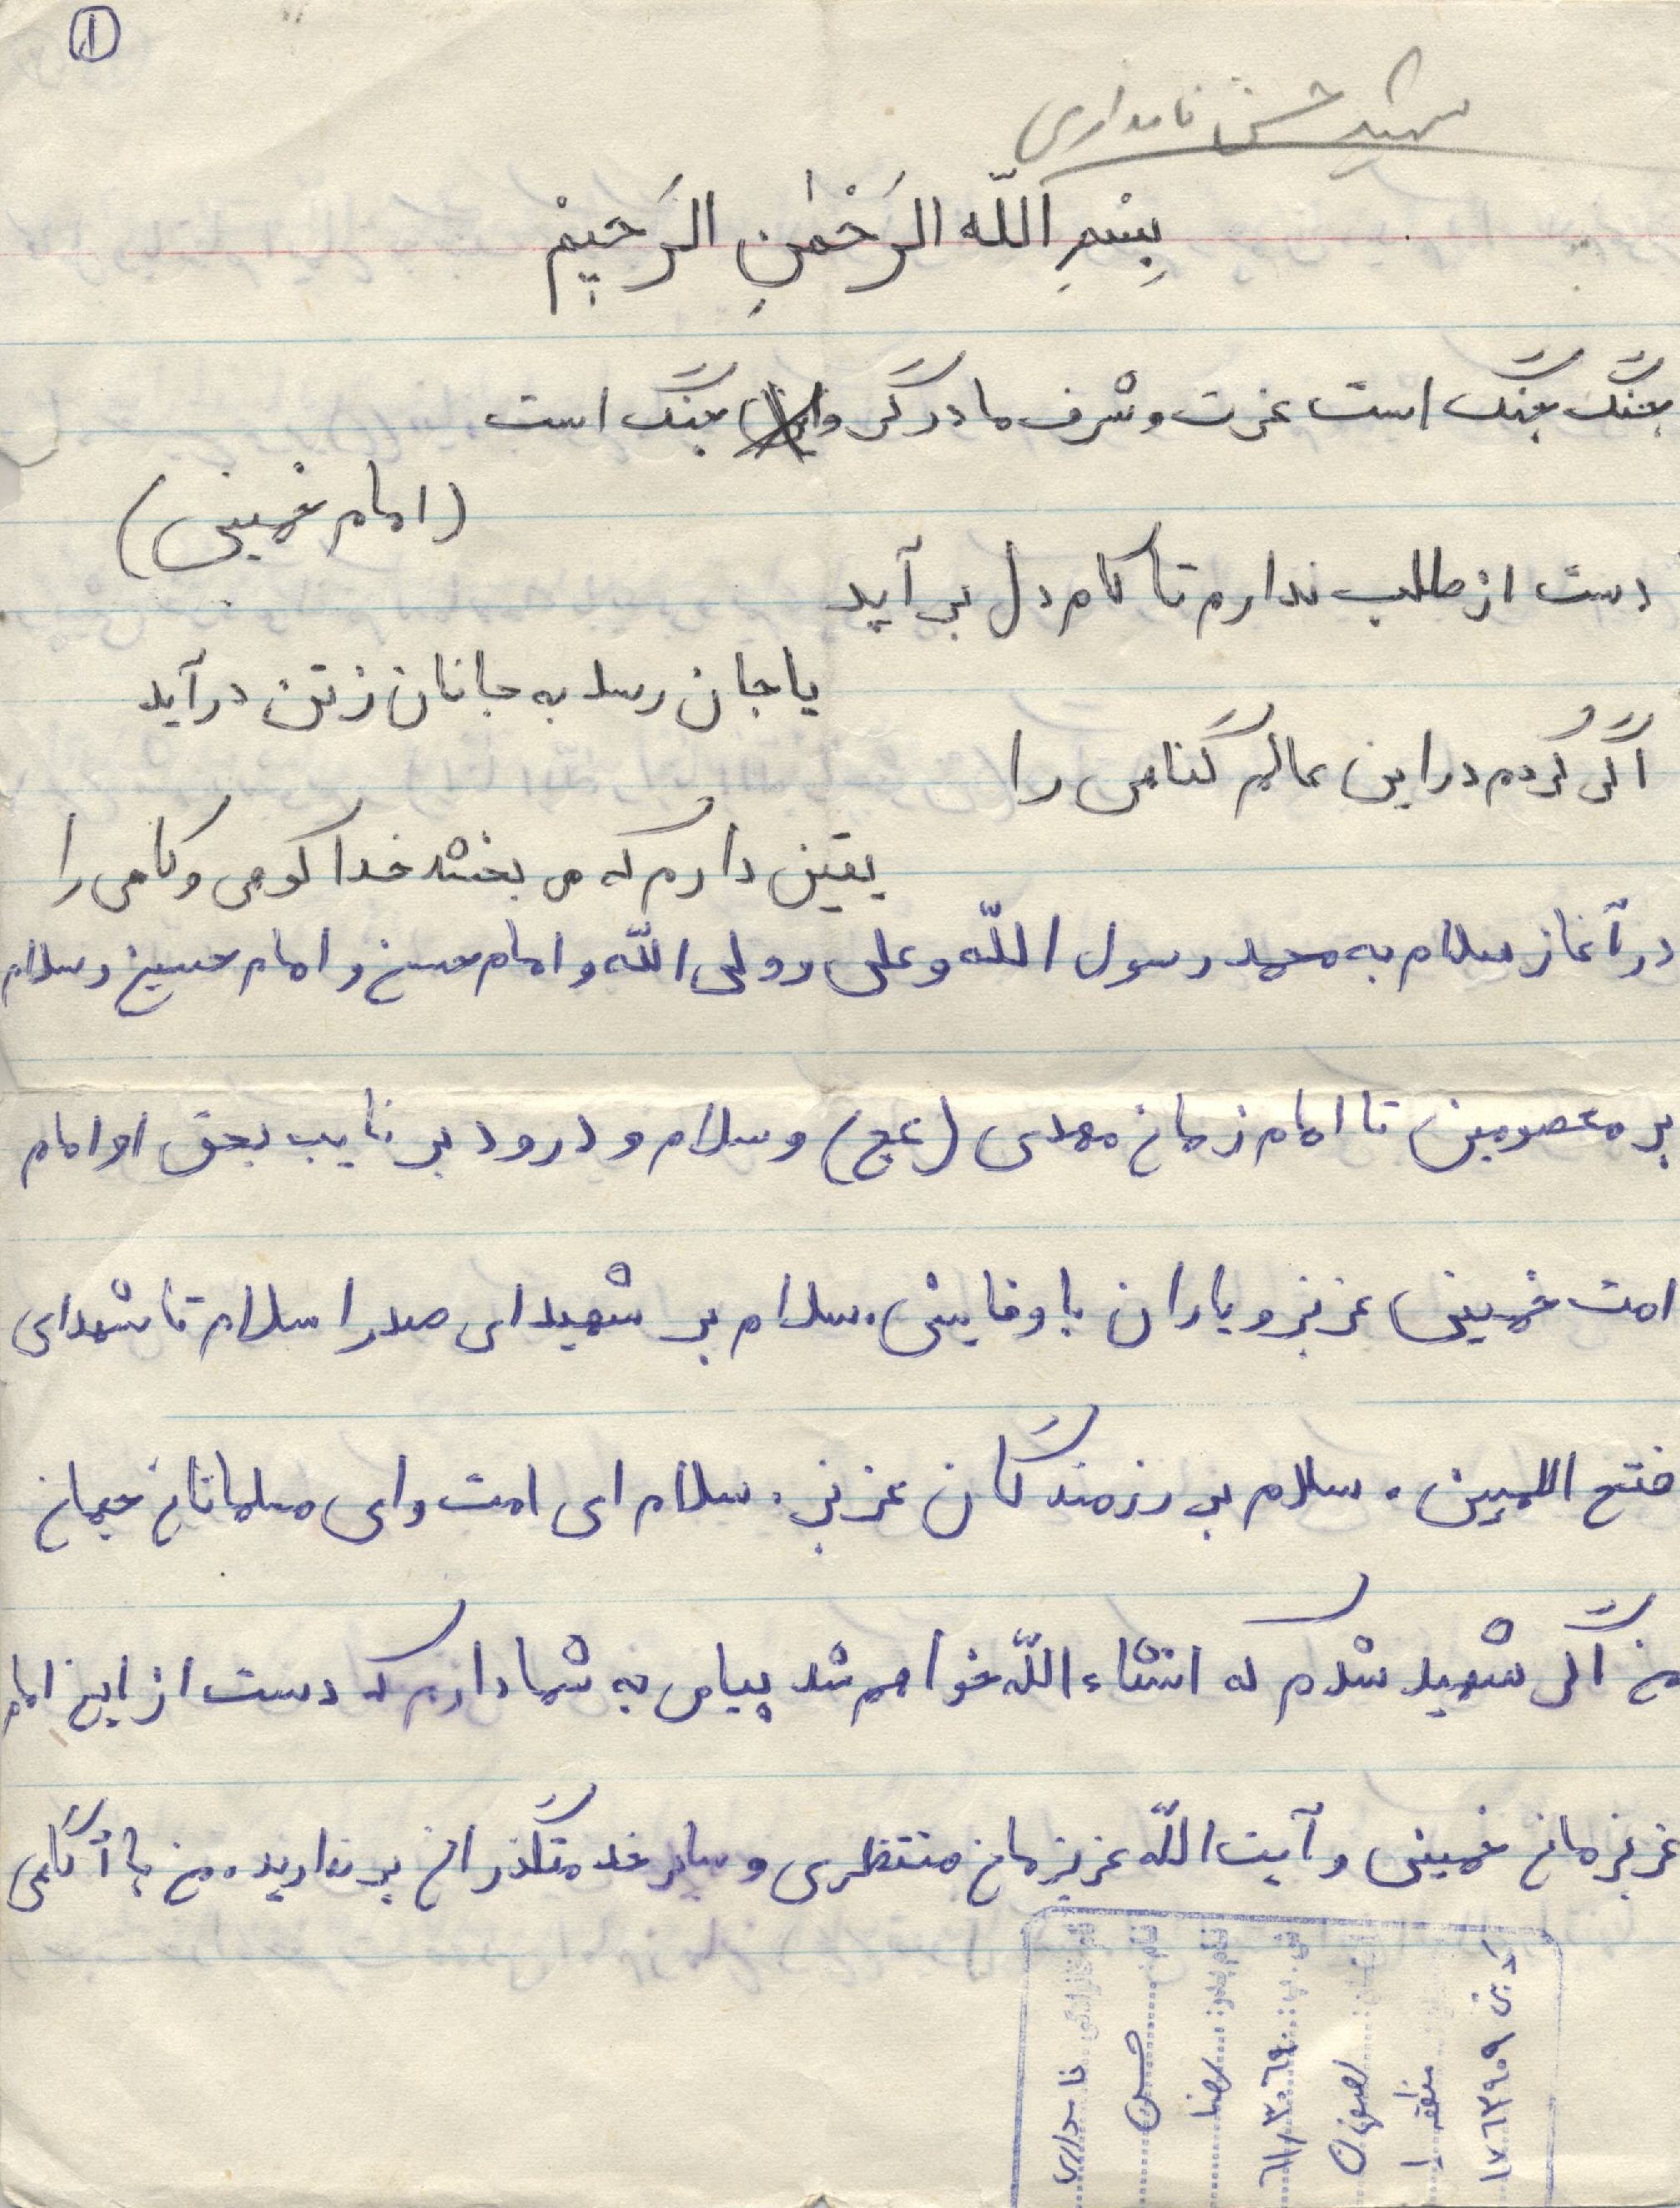 ۱
شهید حسن نامداری
بِسْمِ اللّه الرَحْمٰنِ الرَحیمْ
جنگ جنگ است عزت و شرف ما در گرو جنگ است
(امام خمینی)
دست از طلب ندارم تا کام دل بر آید
یا جان رسد به جانان ز تن در آید
اگر کردم در این عالم گناهی را
یقین دارم که می بخشد خدا کوهی و کاهی را
در آغاز سلام به محمد رسول اللّه و علی وولی اللّه و امام حسن و امام حسین و سلام
بر معصومین تا امام زمان مهدی (عج) و سلام و درود بر نایب بحق او امام
امت خمینی عزیز و یاران با وفایش. سلام بر شهیدای صدر اسلام تا شهدای
فتح المبین. سلام بر رزمندگان عزیز. سلام ای امت و ای مسلمانان جهان
من اگر شهید شدم که انشاء اللّه خواهم شد پیامی به شما دارم که دست از این امام
عزیزمان خمینی و آیت اللّه عزیزمان منتظری و سایر خدمتگذران بر ندارید. من با آگاهی
نام خانوادگی نامداری
نام: حسن
نام پدر: رضا
ش. پ: ۶۱/۳۰۶۹۰
استان: اصفهان
منطقه ۱
کد بنی ۱۷۶۳۹۰۹